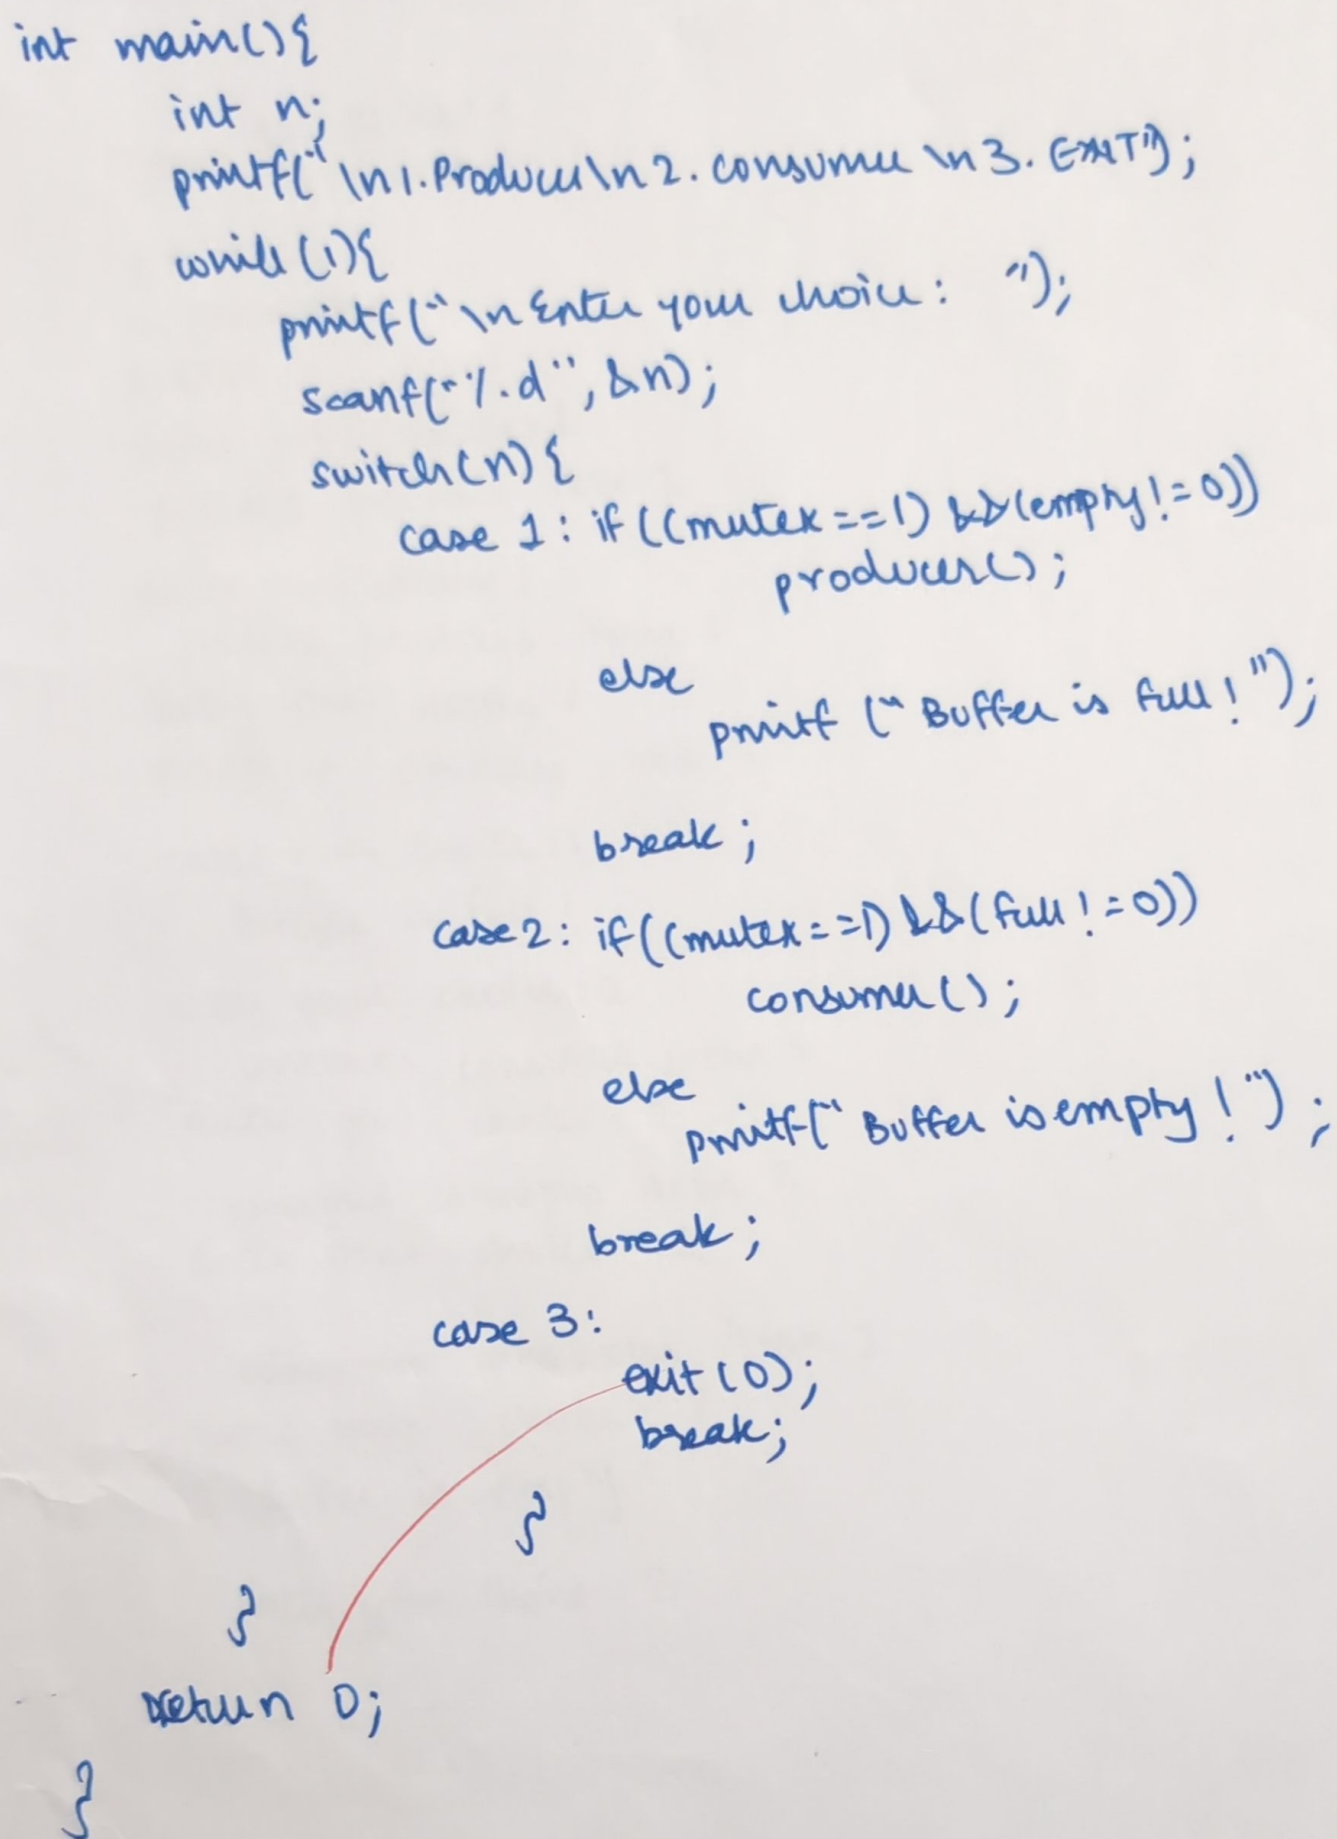 int main(){
int n;
printf("\n1.Producer\n2.consumer\n3.EXIT");
while(1){
printf("\nEnter your choice: ");
scanf("%d",&n);
switch(n){
case 1: if((mutex==1)&&(empty!=0))
producer();
else
printf("Buffer is full!");
break;
case 2: if((mutex==1)&&(full!=0))
consumer();
else
printf("Buffer is empty!");
break;
case 3:
exit(0);
break;
}
}
return 0;
}